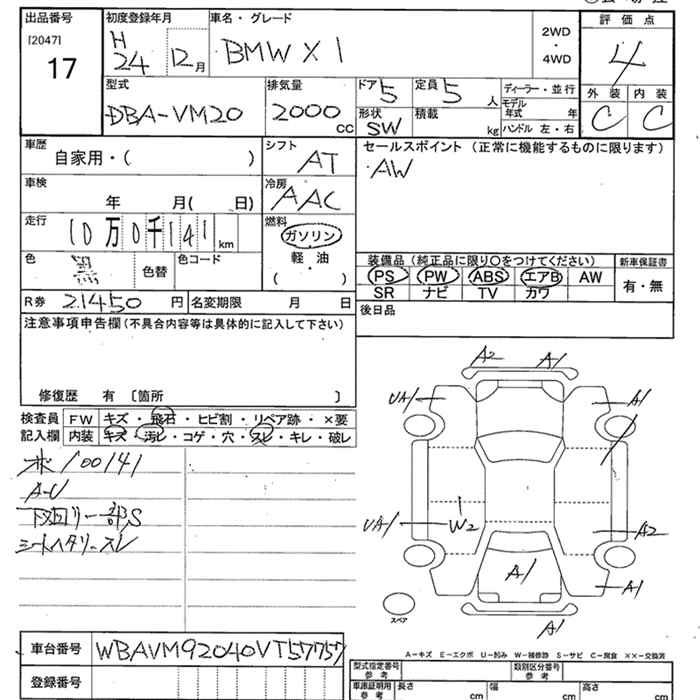 出品番号 初度登録年月 車名・グレード 評価点
[2047] H BMW X1 2WD
17 24 12月 ・ 4WD 4
型式 排気量 ドア 5 定員 5人 ディーラー・並行 外装 内装
DBA-VM20 2000cc 形状 SW 積載 kg モデル年式 年 C C
ハンドル 左・右
車歴 自家用・( ) シフト AT セールスポイント(正常に機能するものに限ります)
車検 年 月( 日) 冷房 AAC AW
走行 10万0千141km 燃料 ガソリン
軽油
・
( )
色 黒 色替 色コード 装備品(純正品に限り○をつけてください) 新車保証書
PS PW ABS エアB AW 有・無
SR ナビ TV カワ
R券 21450円 名変期限 月 日 後日品
注意事項申告欄(不具合内容等は具体的に記入して下さい)
修復歴 有 〔箇所 〕
検査員 FW キズ・飛石・ヒビ割・リペア跡・×要
記入欄 内装 キズ・汚レ・コゲ・穴・スレ・キレ・破レ
A2 A1
UA1 A1
ホ/00141
A-U
下回リ一部S
シートヘタリ-スレ
UA1 W2 A2
A1 A1
スペア
A1
車台番号 WBAVM92040VT57757
A-キズ E-エクボ U-凹み W-補修跡 S-サビ C-腐食 ××-交換済
登録番号 型式指定番号 参考 類別区分番号 参考
車庫証明用 参考 長さ cm 幅 cm 高さ cm